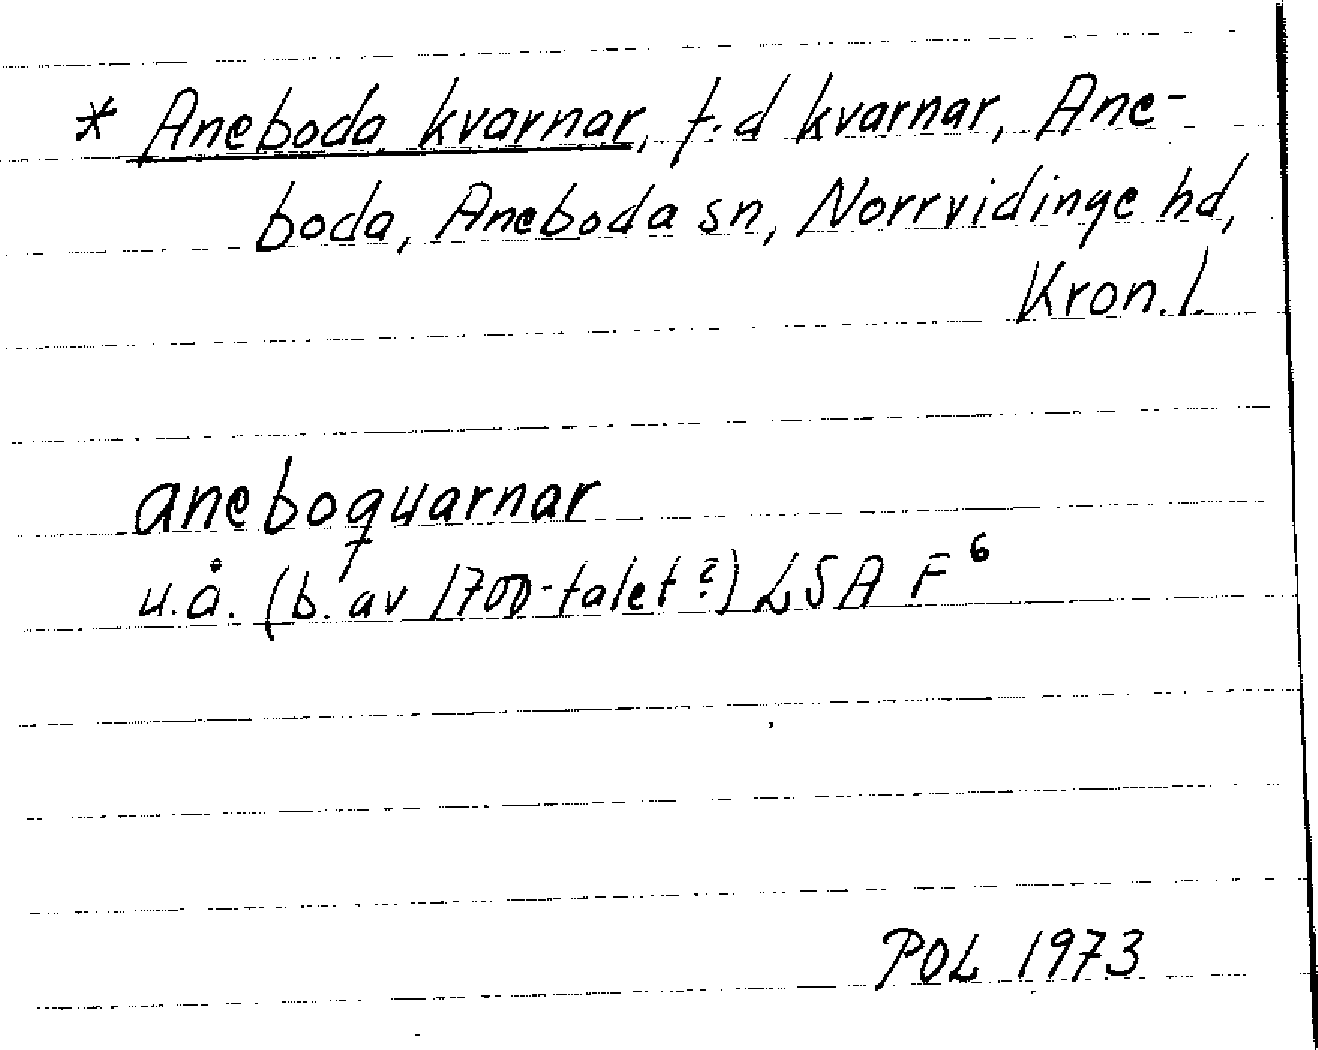 * Aneboda kvarnar, f.d kvarnar, Ane-
boda, Aneboda sn, Norrvidinge hd,
Kron. l.
aneboquarnar
u.å. (b. av 1700-talet?) LSA F⁶
POL 1973